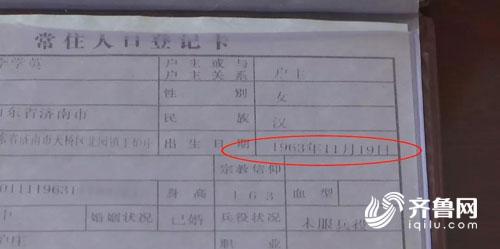 常住人口登记卡
学英 户主或与户主关系 户主
性别 女
东省济南市 民族 汉
东省济南市天桥区北园镇 出生日期 1963年11月19日
宗教信仰
011119631 身高 163 血型
婚姻状况 已婚 兵役状况 未服兵役
职业
齐鲁网
iqilu.com